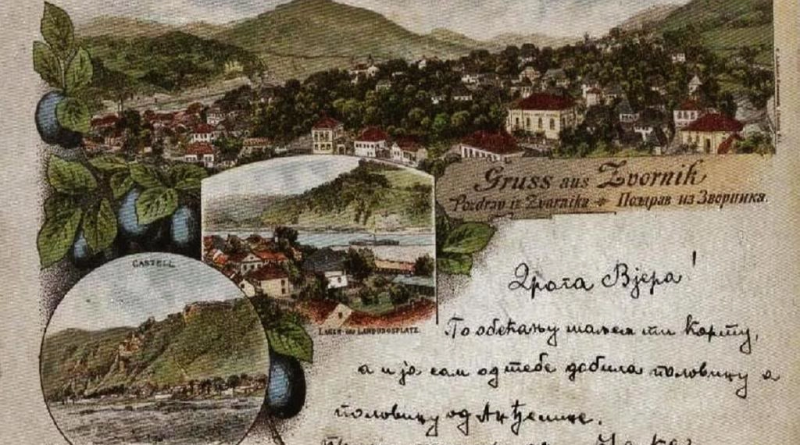 Gruss aus Zvornik
Pozdrav iz Zvornika ✦ Поздрав из Зворника.
CASTELL
LAGER- UND LANDUNGSPLATZ.
Драга Вјера!
По обећању шаљем ти карту,
а и ја сам од тебе добила половицу а
половицу од Анђелине.